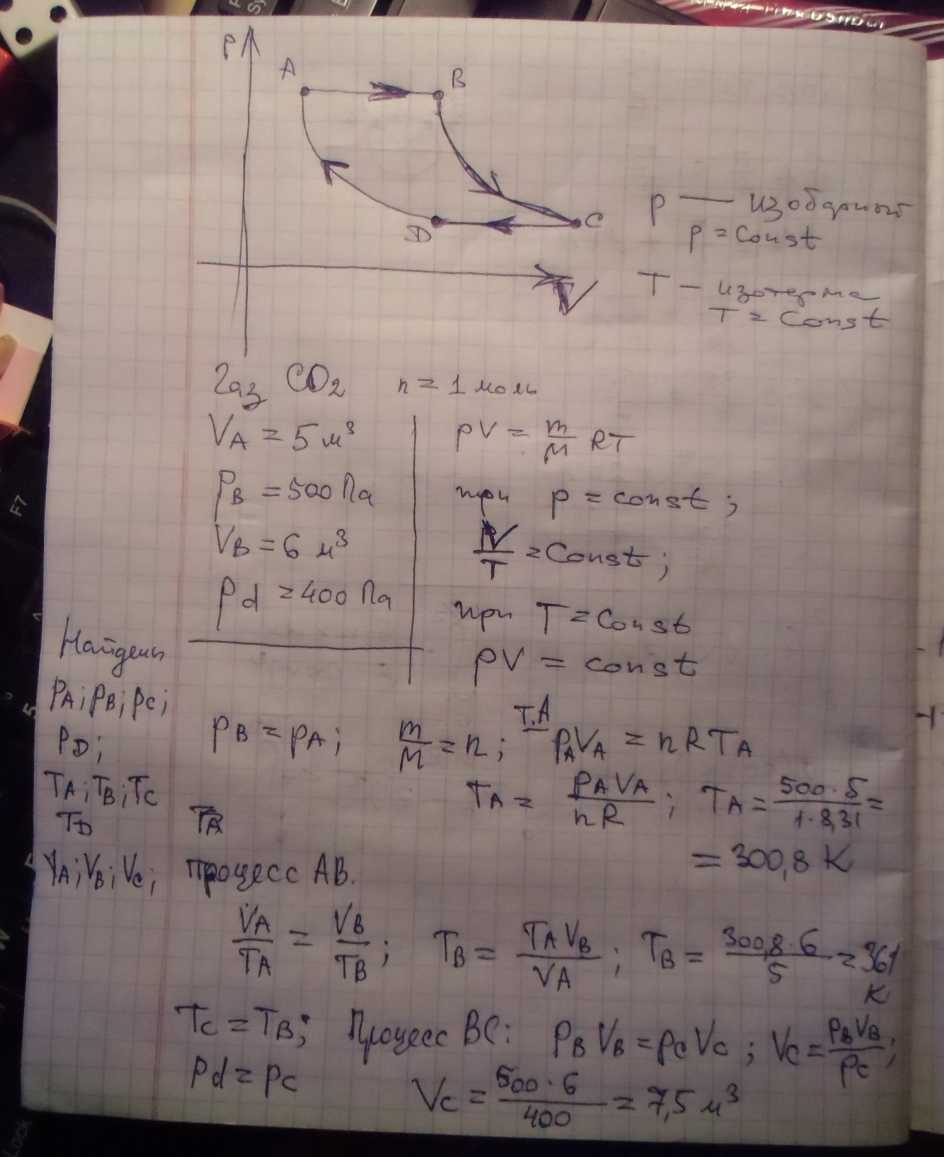 p
A
B
D
C
V
p — изобарный
p = const
T — изотерма
T = const
Газ CO₂ n = 1 моль
V_A = 5 м³
p_B = 500 Па
V_B = 6 м³
p_d = 400 Па
pV = m/M RT
при p = const;
V/T = const;
при T = const
pV = const
Найдены
p_A; p_B; p_C;
p_D;
T_A; T_B; T_C
T_D
V_A; V_B; V_C;
p_B = p_A; m/M = n; т.A p_A V_A = nRT_A
T_A = p_A V_A / nR; T_A = 500·5 / 1·8,31 =
= 300,8 K
Процесс AB.
V_A/T_A = V_B/T_B; T_B = T_A V_B / V_A; T_B = 300,8·6 / 5 = 361 K
T_C = T_B; Процесс BC: p_B V_B = p_C V_C; V_C = p_B V_B / p_C;
p_d = p_C V_C = 500·6 / 400 = 7,5 м³
F7
5